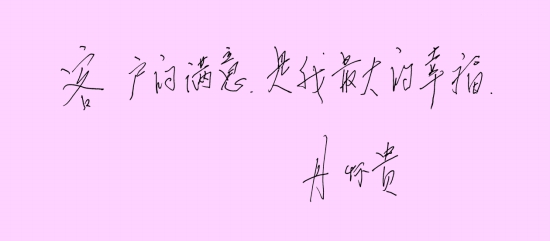 客户的满意.是我最大的幸福.
丹怀贵